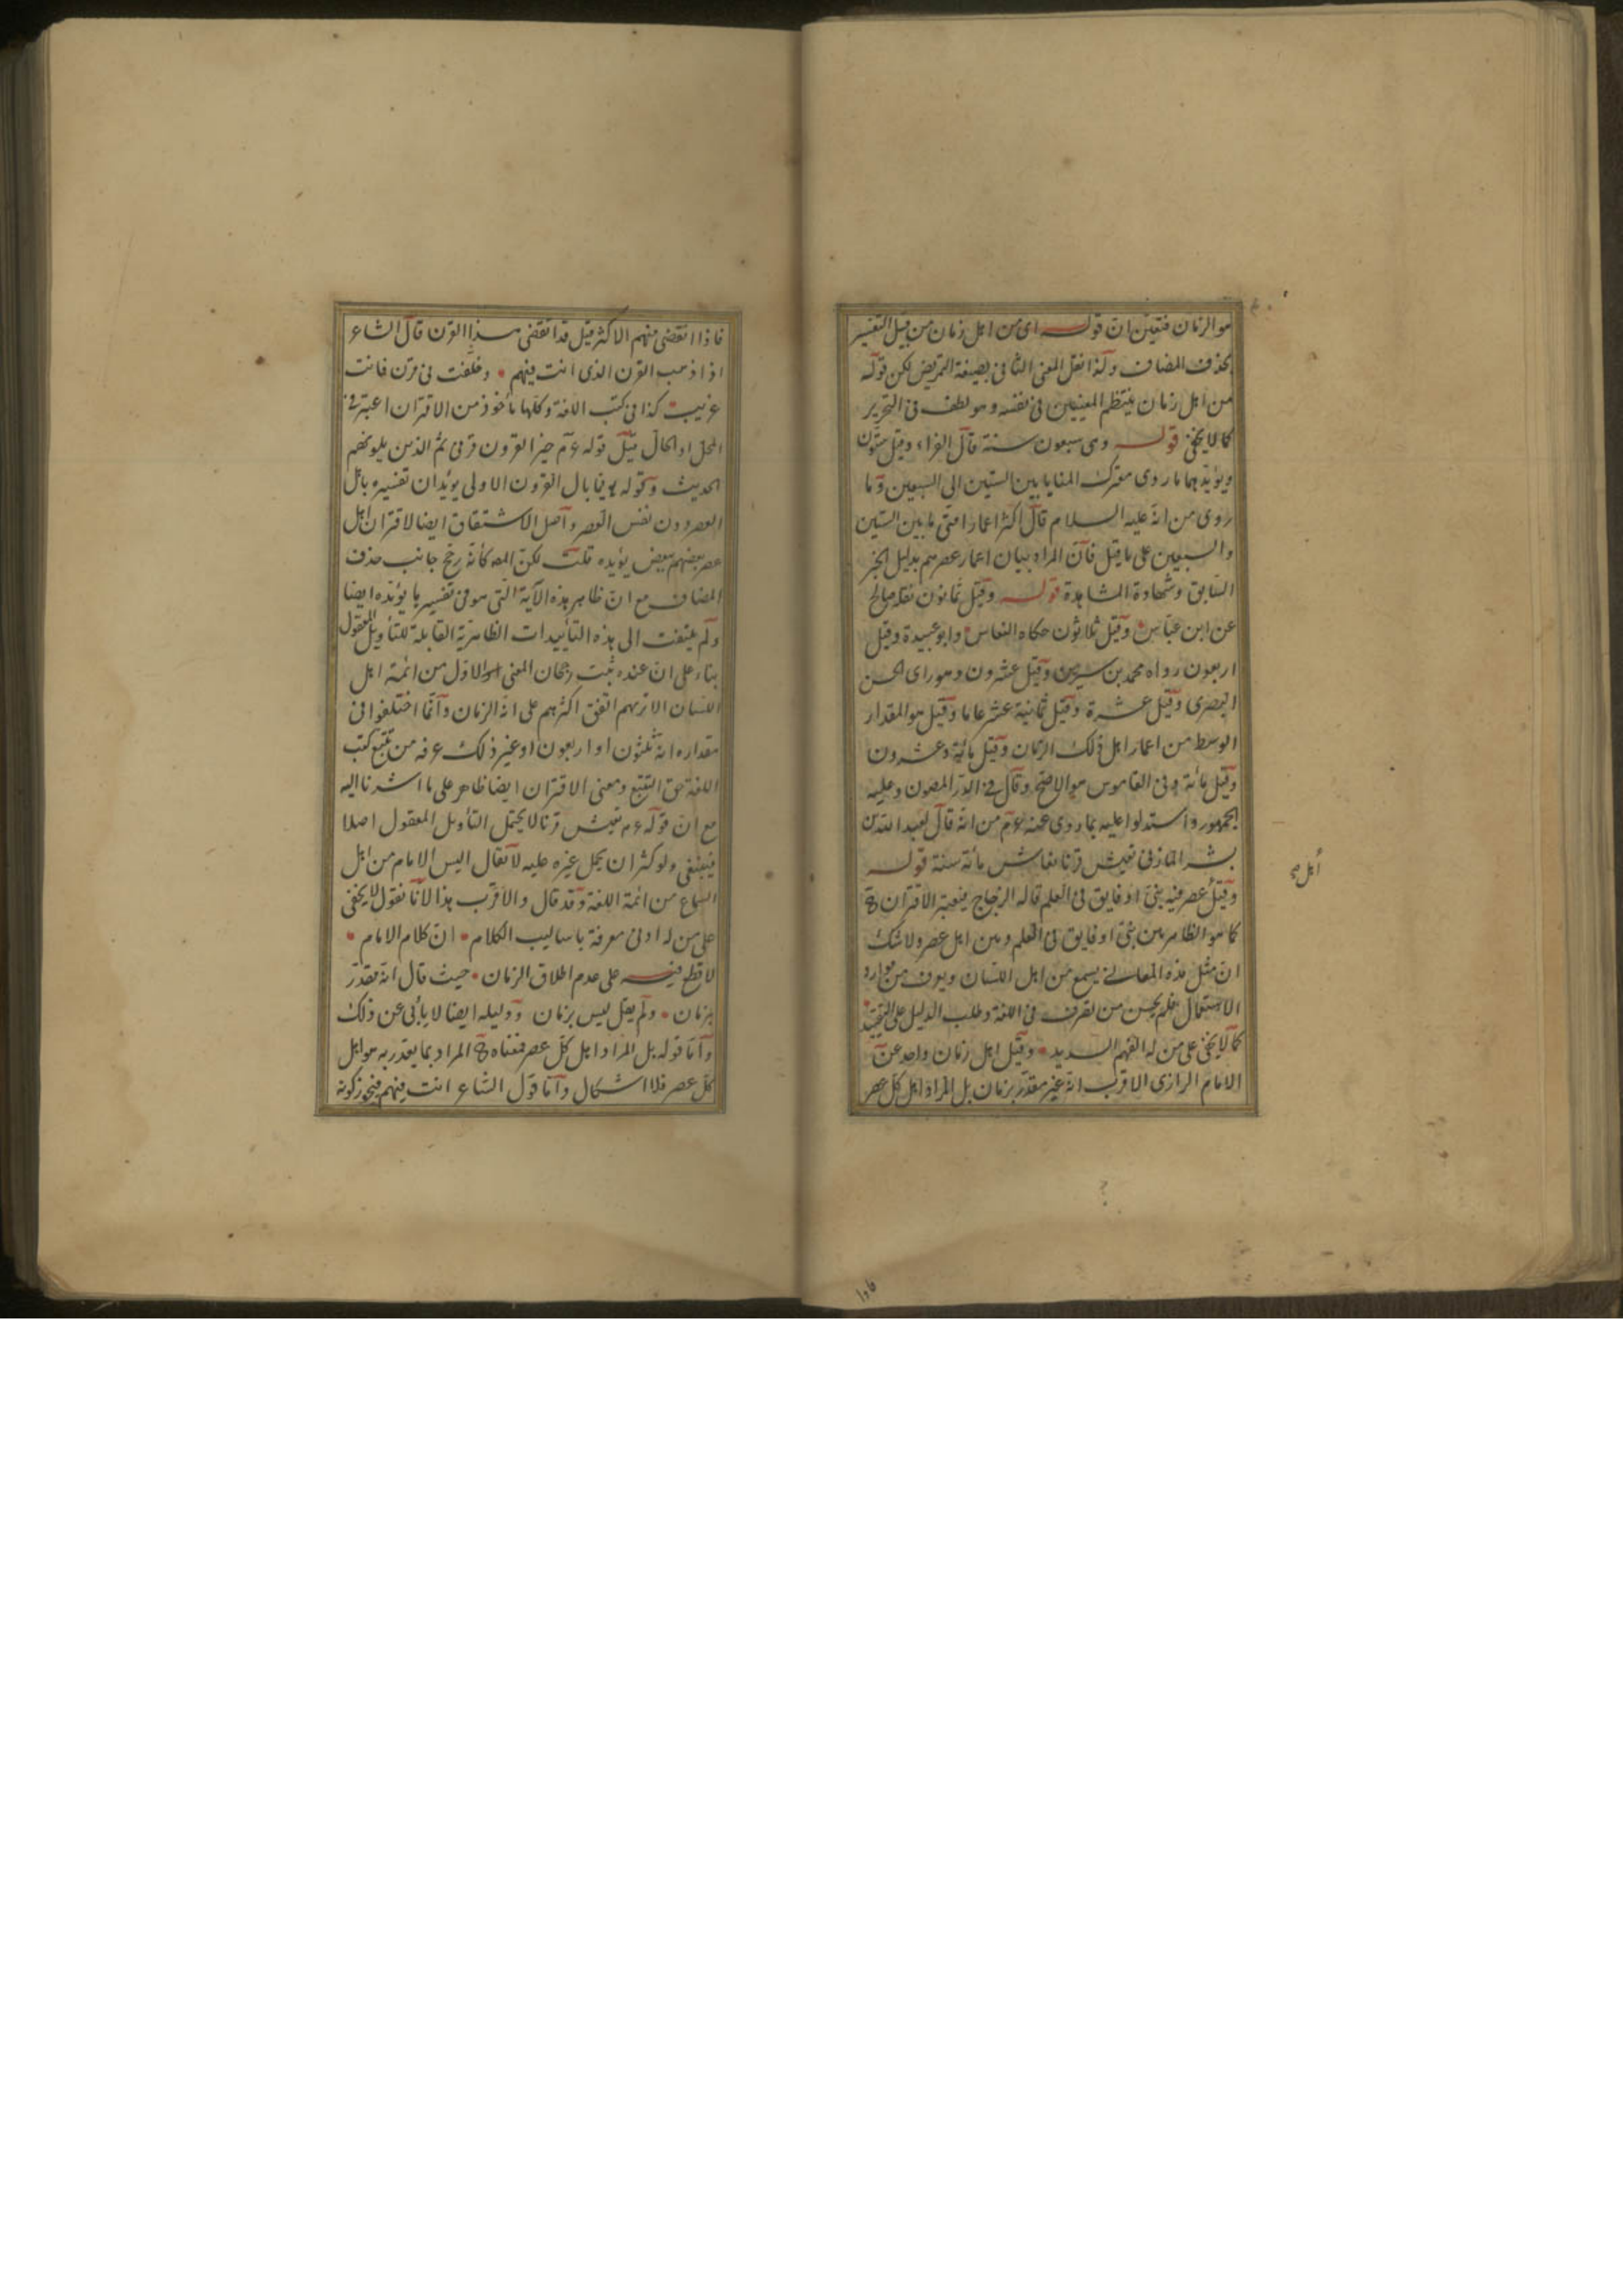 هو الزمان فتعين ان قوله اى من اهل زمان من قبيل التفسير
بحذف المضاف ولذا نقل المعنى الثانى بصيغة التمريض لكن قوله
من اهل زمان ينتظم المعنيين فى نفسه وهو لطف فى التحرير
كما لا يخفى قوله وهى سبعون سنة قال الفراء وقيل ستون
ويؤيدهما ما روى معترك المنايا بين الستين الى السبعين وما
روى من انه عليه السلام قال اكثر اعمار امتى ما بين الستين
والسبعين على ما قيل فان المراد بيان اعمار عصرهم بدليل الخبر
السابق وشهادة المشاهدة قوله وقيل ثمانون نقله صالح
عن ابن عباس وقيل ثلاثون حكاه النقاش وابو عبيدة وقيل
اربعون رواه محمد بن سيرين وقيل عشرون وهو راى الحسن
البصرى وقيل عشرة وقيل ثمانية عشر عاما وقيل هو المقدار
الوسط من اعمار اهل ذلك الزمان وقيل مائة وعشرون
وقيل مائة وفى القاموس هو الاصح وقال فى الدر المصون وعليه
الجمهور واستدلوا عليه بما روى عنه ع م من انه قال لعبد الله بن
بشر المازنى تعيش قرنا فعاش مائة سنة قوله
وقيل عصر فيه نبى او فايق فى العلم قاله الزجاج فيعتبر الاقتران ح
كما هو الظاهر بين نبى او فايق فى العلم وبين اهل عصره ولا شك
ان مثل هذه المعانى يسمع من اهل اللسان ويعرف من موارد
الاستعمال فلم يحسن من تصرف فى اللغة وطلب الدليل على
كما لا يخفى على من له الفهم السديد وقيل اهل زمان واحد عن
الامام الرازى الاقرب انه غير مقدر بزمان بل المراد اهل كل عصر
اهل صح
فاذا انقضى منهم الاكثر قيل قد انقضى هذا القرن قال الشاعر
اذا ذهب القرن الذى انت فيهم وخلفت فى قرن فانت
غريب كذا فى كتب اللغة وكلها مأخوذ من الاقتران اعتبر فى
المحل او الحال قيل قوله ع م خير القرون قرنى ثم الذين يلونهم
الحديث وقوله فما بال القرون الاولى يؤيدان تفسيره باهل
العصر دون نفس العصر واصل الاشتقاق ايضا لاقتران اهل
عصر بعضهم ببعض يؤيده قلت لكن المص كأنه رجح جانب حذف
المضاف مع ان ظاهر هذه الآية التى هو فى تفسيرها يؤيده ايضا
ولم يلتفت الى هذه التأييدات الظاهرية القابلة للتأويل المعقول
بناء على ان عنده ثبت رجحان المعنى الاول من ائمة اهل
اللسان الا تريهم اتفق اكثرهم على انه الزمان وانما اختلفوا فى
مقداره انه ثلثون او اربعون او غير ذلك عرفه من تتبع كتب
اللغة حق التتبع ومعنى الاقتران ايضا ظاهر على ما اشرنا اليه
مع ان قوله ع م تعيش قرنا لا يحتمل التأويل المعقول اصلا
فينبغى ولو كثر ان يحمل غيره عليه لا يقال اليس الامام من اهل
السماع من ائمة اللغة وقد قال والاقرب هذا لانا نقول لا يخفى
على من له ادنى معرفة باساليب الكلام ان كلام الامام
لا قطع فيه على عدم اطلاق الزمان حيث قال انه مقدر
بزمان ولم يقل ليس بزمان ودليله ايضا لا يأبى عن ذلك
واما قوله بل المراد اهل كل عصر فمعناه ح المراد بما يقدر به هو اهل
كل عصر فلا اشكال واما قول الشاعر انت فيهم فيجوز كونه